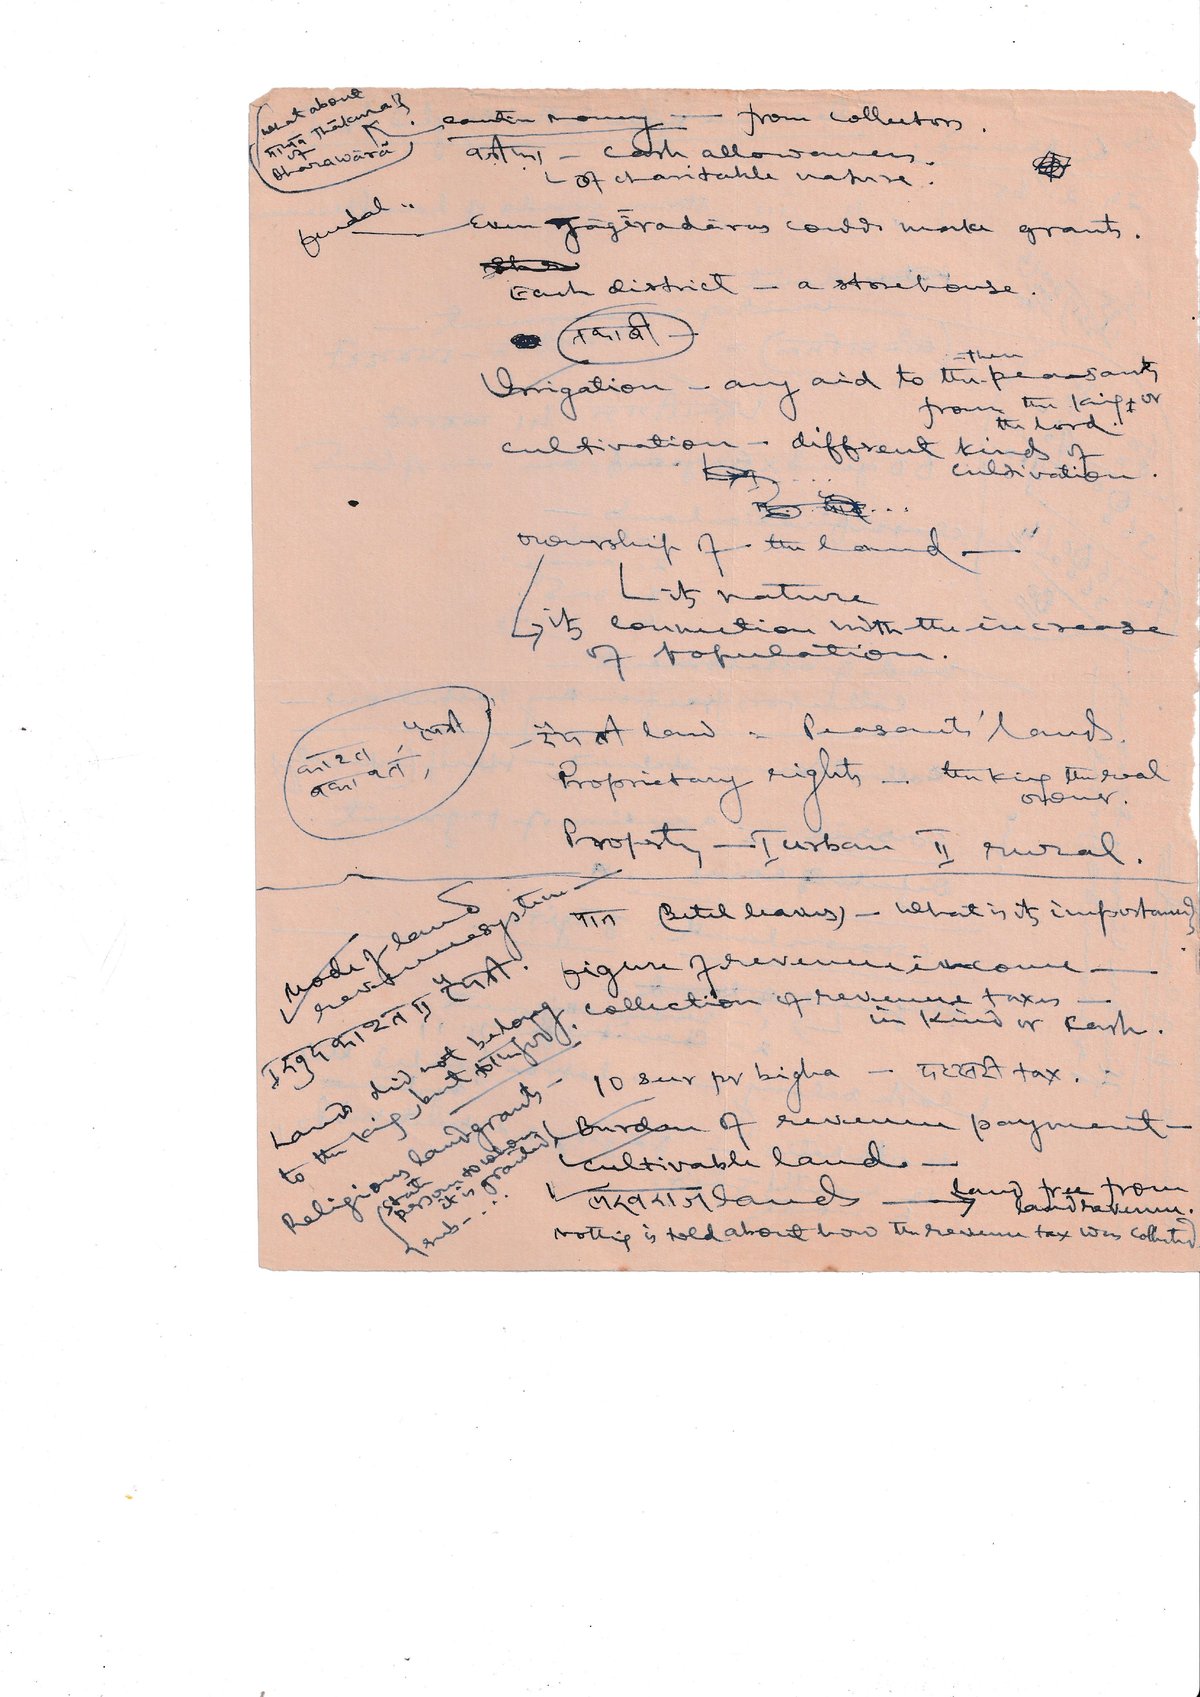 what about
Thakurais
of
Dharawārā
caution money — from collectors.
वर्षा — cash allowances.
of charitable nature.
feudal ..
Even Jāgīradāras could make grants.
Each district — a storehouse.
तकावी —
Irrigation — any aid to the peasants
then
from the king or
the lord.
cultivation — different kinds of
cultivation.
ownership of the land —
its nature
its connection with the increase
of population.
रैयती land = Peasants' lands.
काश्त
Proprietary rights — the king the real
owner.
Property — I urban II rural.
mode of land
revenue system
पान (Betel leaves) — what is its importance
figure of revenue income —
collection of revenue taxes —
in kind or cash.
Lands did not belong
to the king, but to
10 seer per bigha — tax.
Religious land grants —
state
person to whom
it is granted
Burden of revenue payment —
cultivable land —
lands → land free from
land revenue.
Nothing is told about how the revenue tax was collected